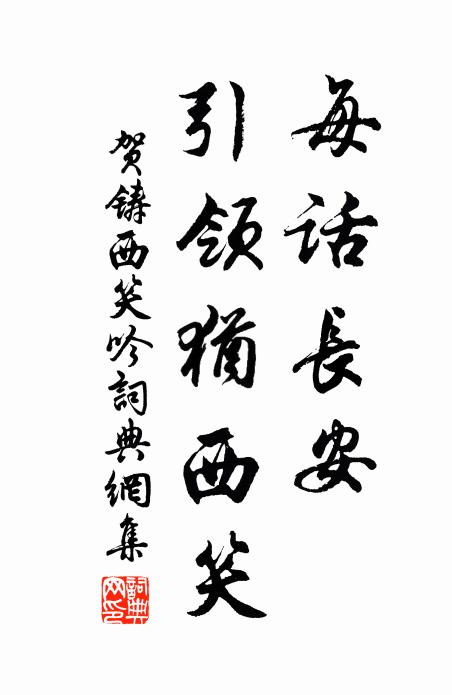 每話長安
引領猶西笑
贺鑄西笑吟詞典網集
詞典網印